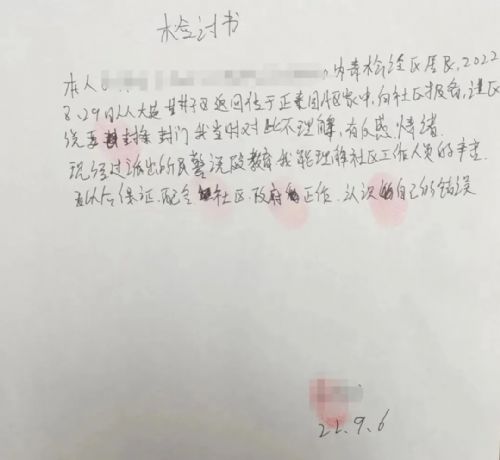 检讨书
本人 为青松社区居民, 2022
8.29日从大连甘井子区返回位于正奥国际家中, 向社区报备, 社区
说要封条封门 我当时对此不理解, 有反感情绪
现经过派出所民警说服教育我能理解社区工作人员的辛苦
在以后保证配合社区. 政府的工作. 认识自己的错误
22.9.6